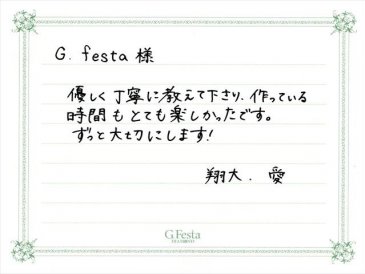 G. festa 様
優しく丁寧に教えて下さり、作っている
時間もとても楽しかったです。
ずっと大切にします!
翔大. 愛
G.Festa